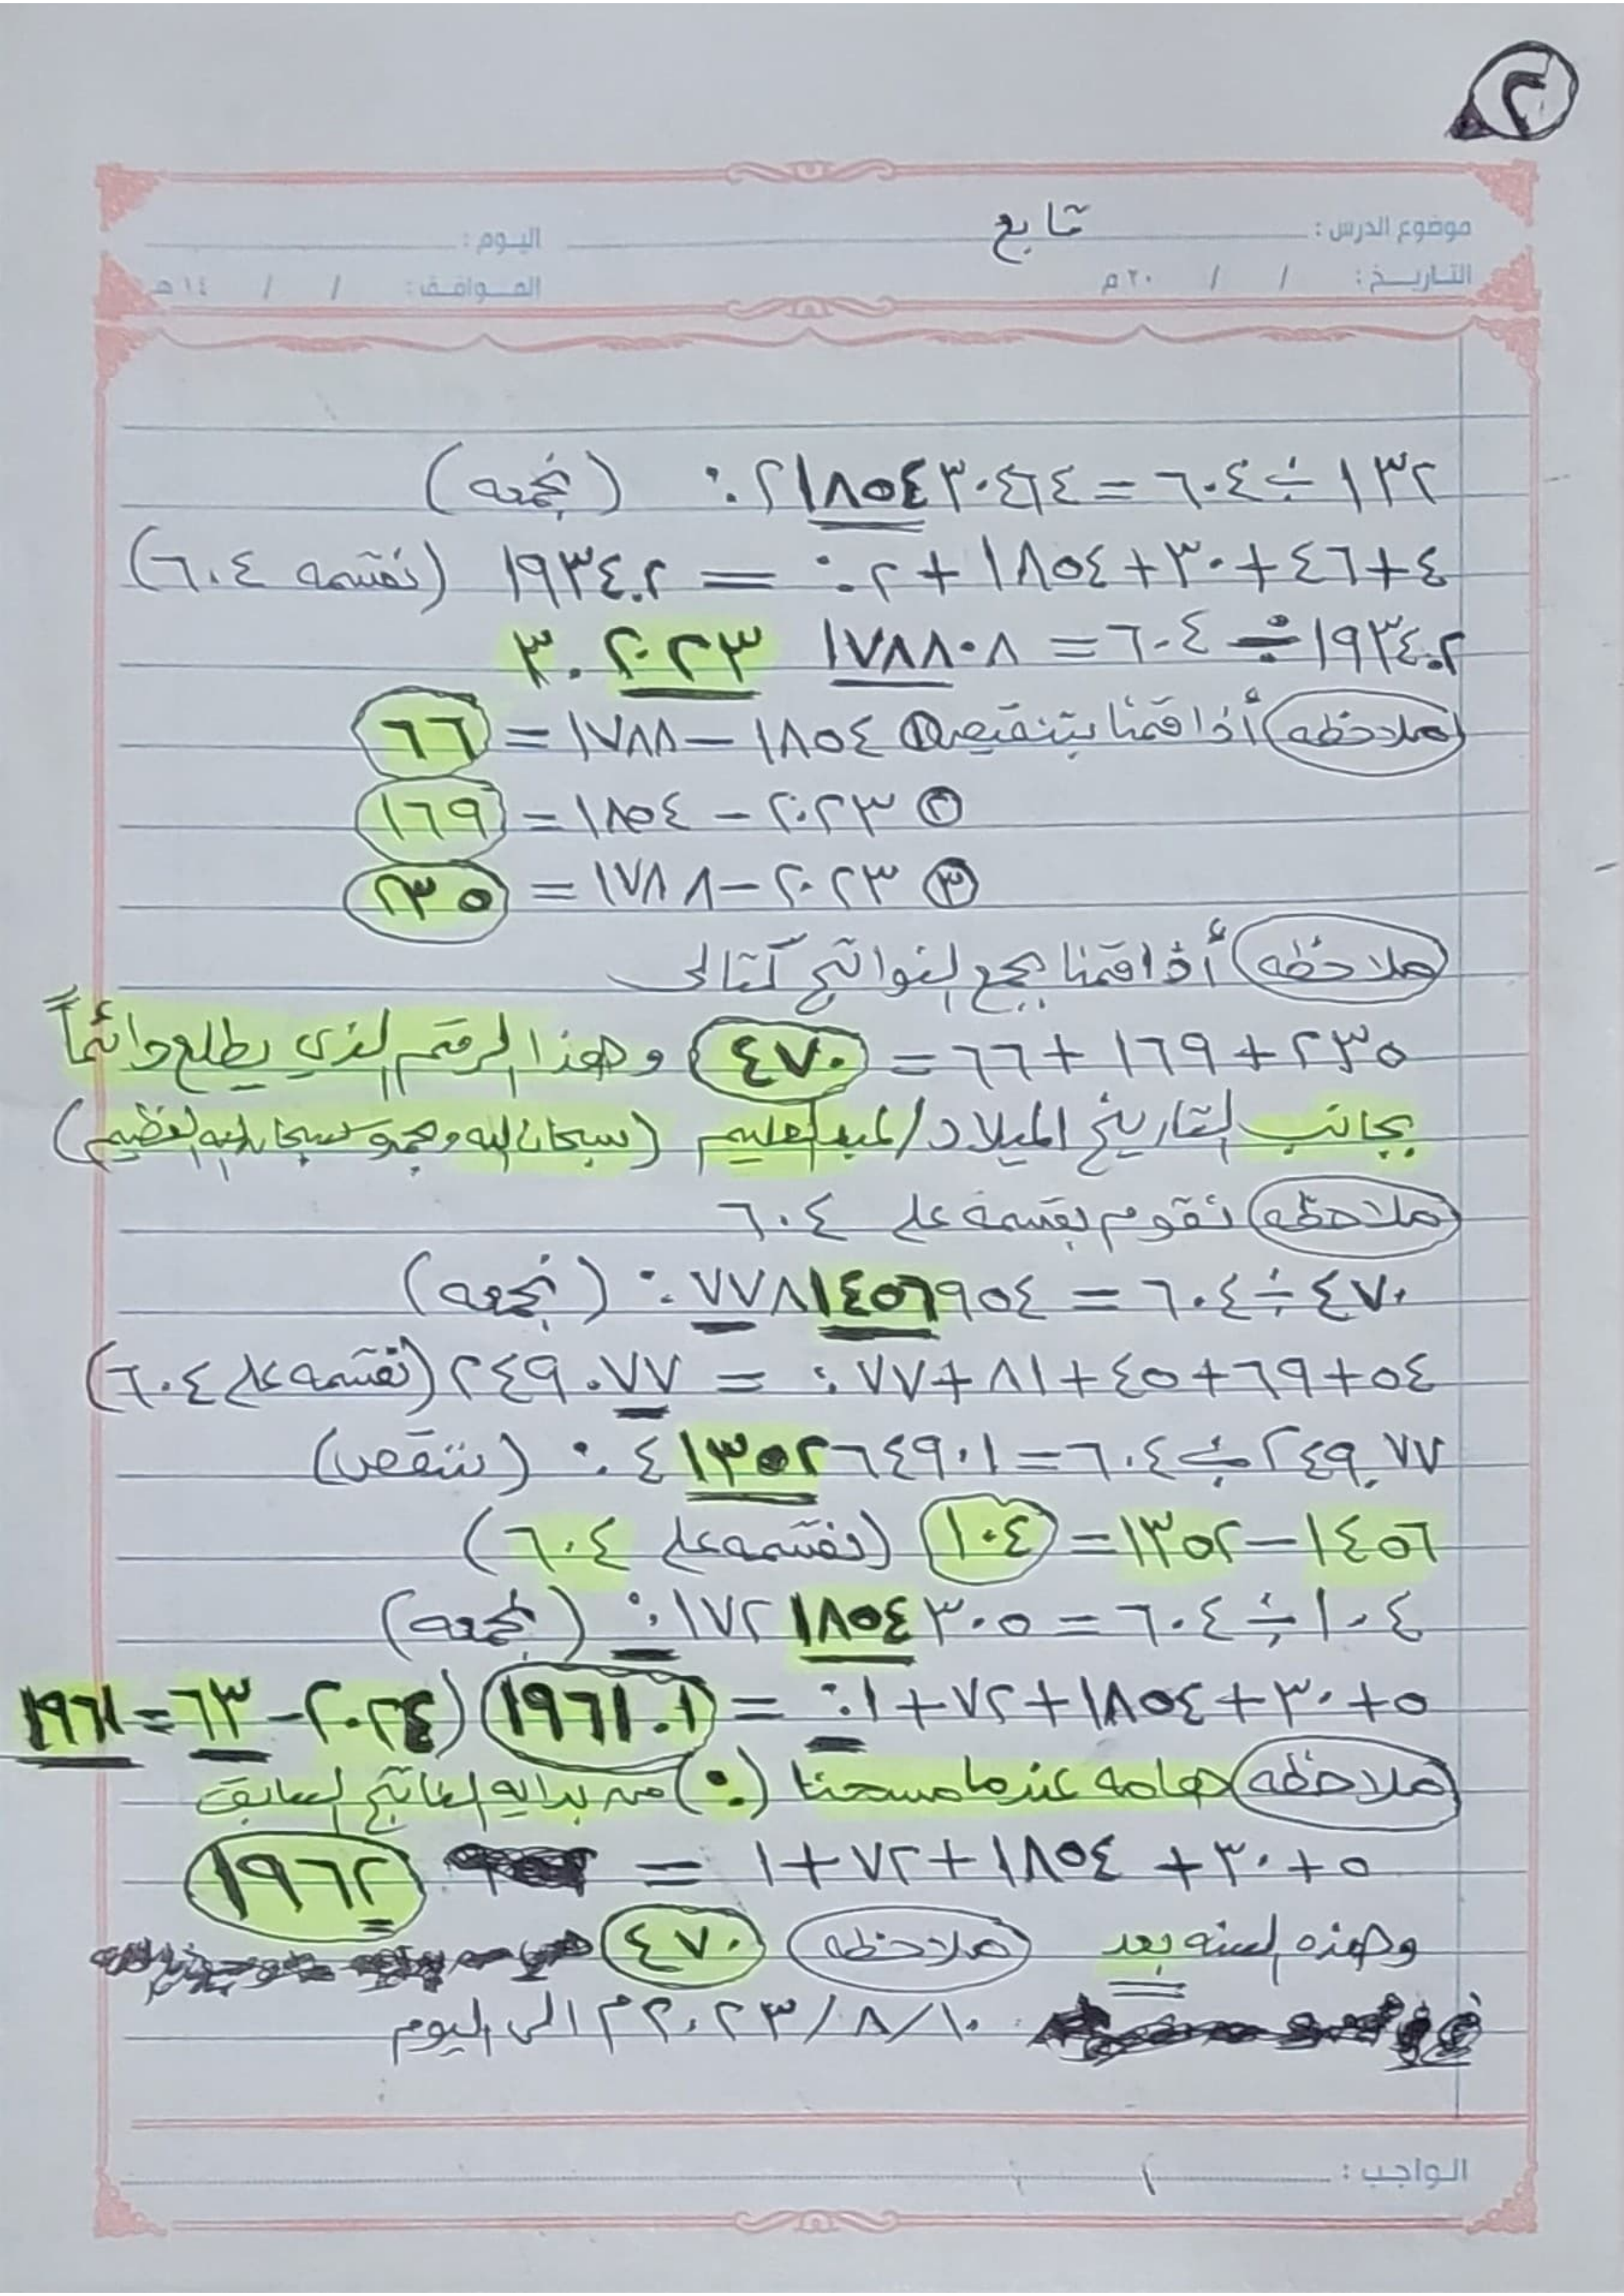 ٢
موضوع الدرس : تابع
اليوم :
التاريخ : / / ٢٠ م
الموافق : / / ١٤ هـ
١٣٢ ÷ ٦٠٤ = ٢١٨٥٤٣٠٤٦٤ ٠: (نجمعه)
٤+٤٦+٣٠+١٨٥٤+٢ ٠: = ١٩٣٤.٢ (نقسمه ٦٠٤)
١٩٣٤.٢ ÷ ٦٠٤ = ١٧٨٨٠٨ ٢٠٢٣ ٣.
ملاحظه أذا قمنا بتنقيص ① ١٨٥٤ – ١٧٨٨ = ٦٦
② ٢٠٢٣ – ١٨٥٤ = ١٦٩
③ ٢٠٢٣ – ١٧٨٨ = ٢٣٥
ملاحظه أذا قمنا بجمع النواتج كتالى
٢٣٥ + ١٦٩ + ٦٦ = ٤٧٠ وهذا الرقم الذي يطلع دائماً
بجانب التاريخ الميلاد / لعبد العليم (سبحان الله وبحمده سبحان الله العظيم)
ملاحظه نقوم بقسمة على ٦٠٤
٤٧٠ ÷ ٦٠٤ = ٧٧٨١٤٥٦٩٥٤ ٠: (نجمعه)
٥٤+٦٩+٤٥+٨١+٧٧ ٠: = ٢٤٩.٧٧ (نقسمه على ٦٠٤)
٢٤٩.٧٧ ÷ ٦٠٤ = ٤١٣٥٢٦٤٩٠١ ٠: (ننقص)
١٤٥٦ – ١٣٥٢ = ١٠٤ (نقسمه على ٦٠٤)
١٠٤ ÷ ٦٠٤ = ١٧٢١٨٥٤٣٠٥ ٠: (نجمعه)
٥+٣٠+١٨٥٤+٧٢+١ ٠: = ١٩٦١.١ (٢٠٢٤ – ٦٣ = ١٩٦١
ملاحظه هامه عندما مسحنا (٠:) من بدايه الناتج السابق
٥+٣٠+١٨٥٤+٧٢+١ = ١٩٦٢
وهذه السنه بعد ملاحظه ٤٧٠
١٠/٨/٢٠٢٣م الى اليوم
الواجب :